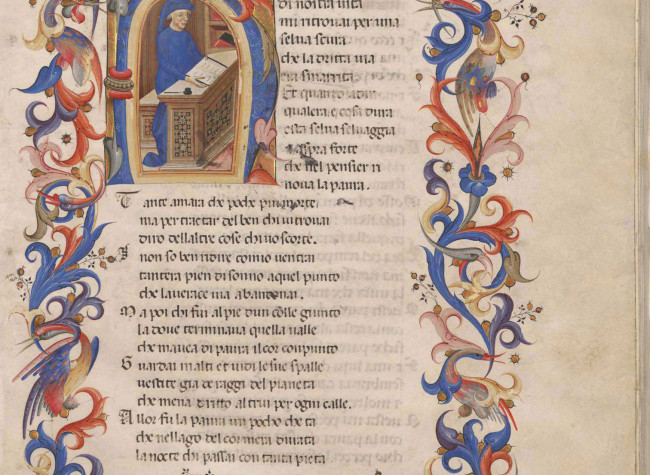 di nostra uita
mi ritrouai per una
selua scura
che la dritta uia
era smarrita
Et quanto a dir
qualera e cosa dura
esta selua seluaggia
aspra forte
che nel pensier ri
noua la paura.
Tante amara che poche piu morte
ma per tractar del ben chi ui trouai
diro dellaltre cose chi uo scorte.
I non so ben ridire comio uentrai
tantera pien di sonno a quel punto
che la uerace uia abandonai.
Ma poi chi fui al pie dun colle giunto
la doue terminaua quella ualle
che mauea di paura il cor conpunto
Guardai in alti et uidi le sue spalle
uestite gia de raggi del pianeta
che mena dritto altrui per ogni calle.
Allor fu la paura un pocho cheta
che nellago del cor mera durata
la nocte chi passai con tanta pieta